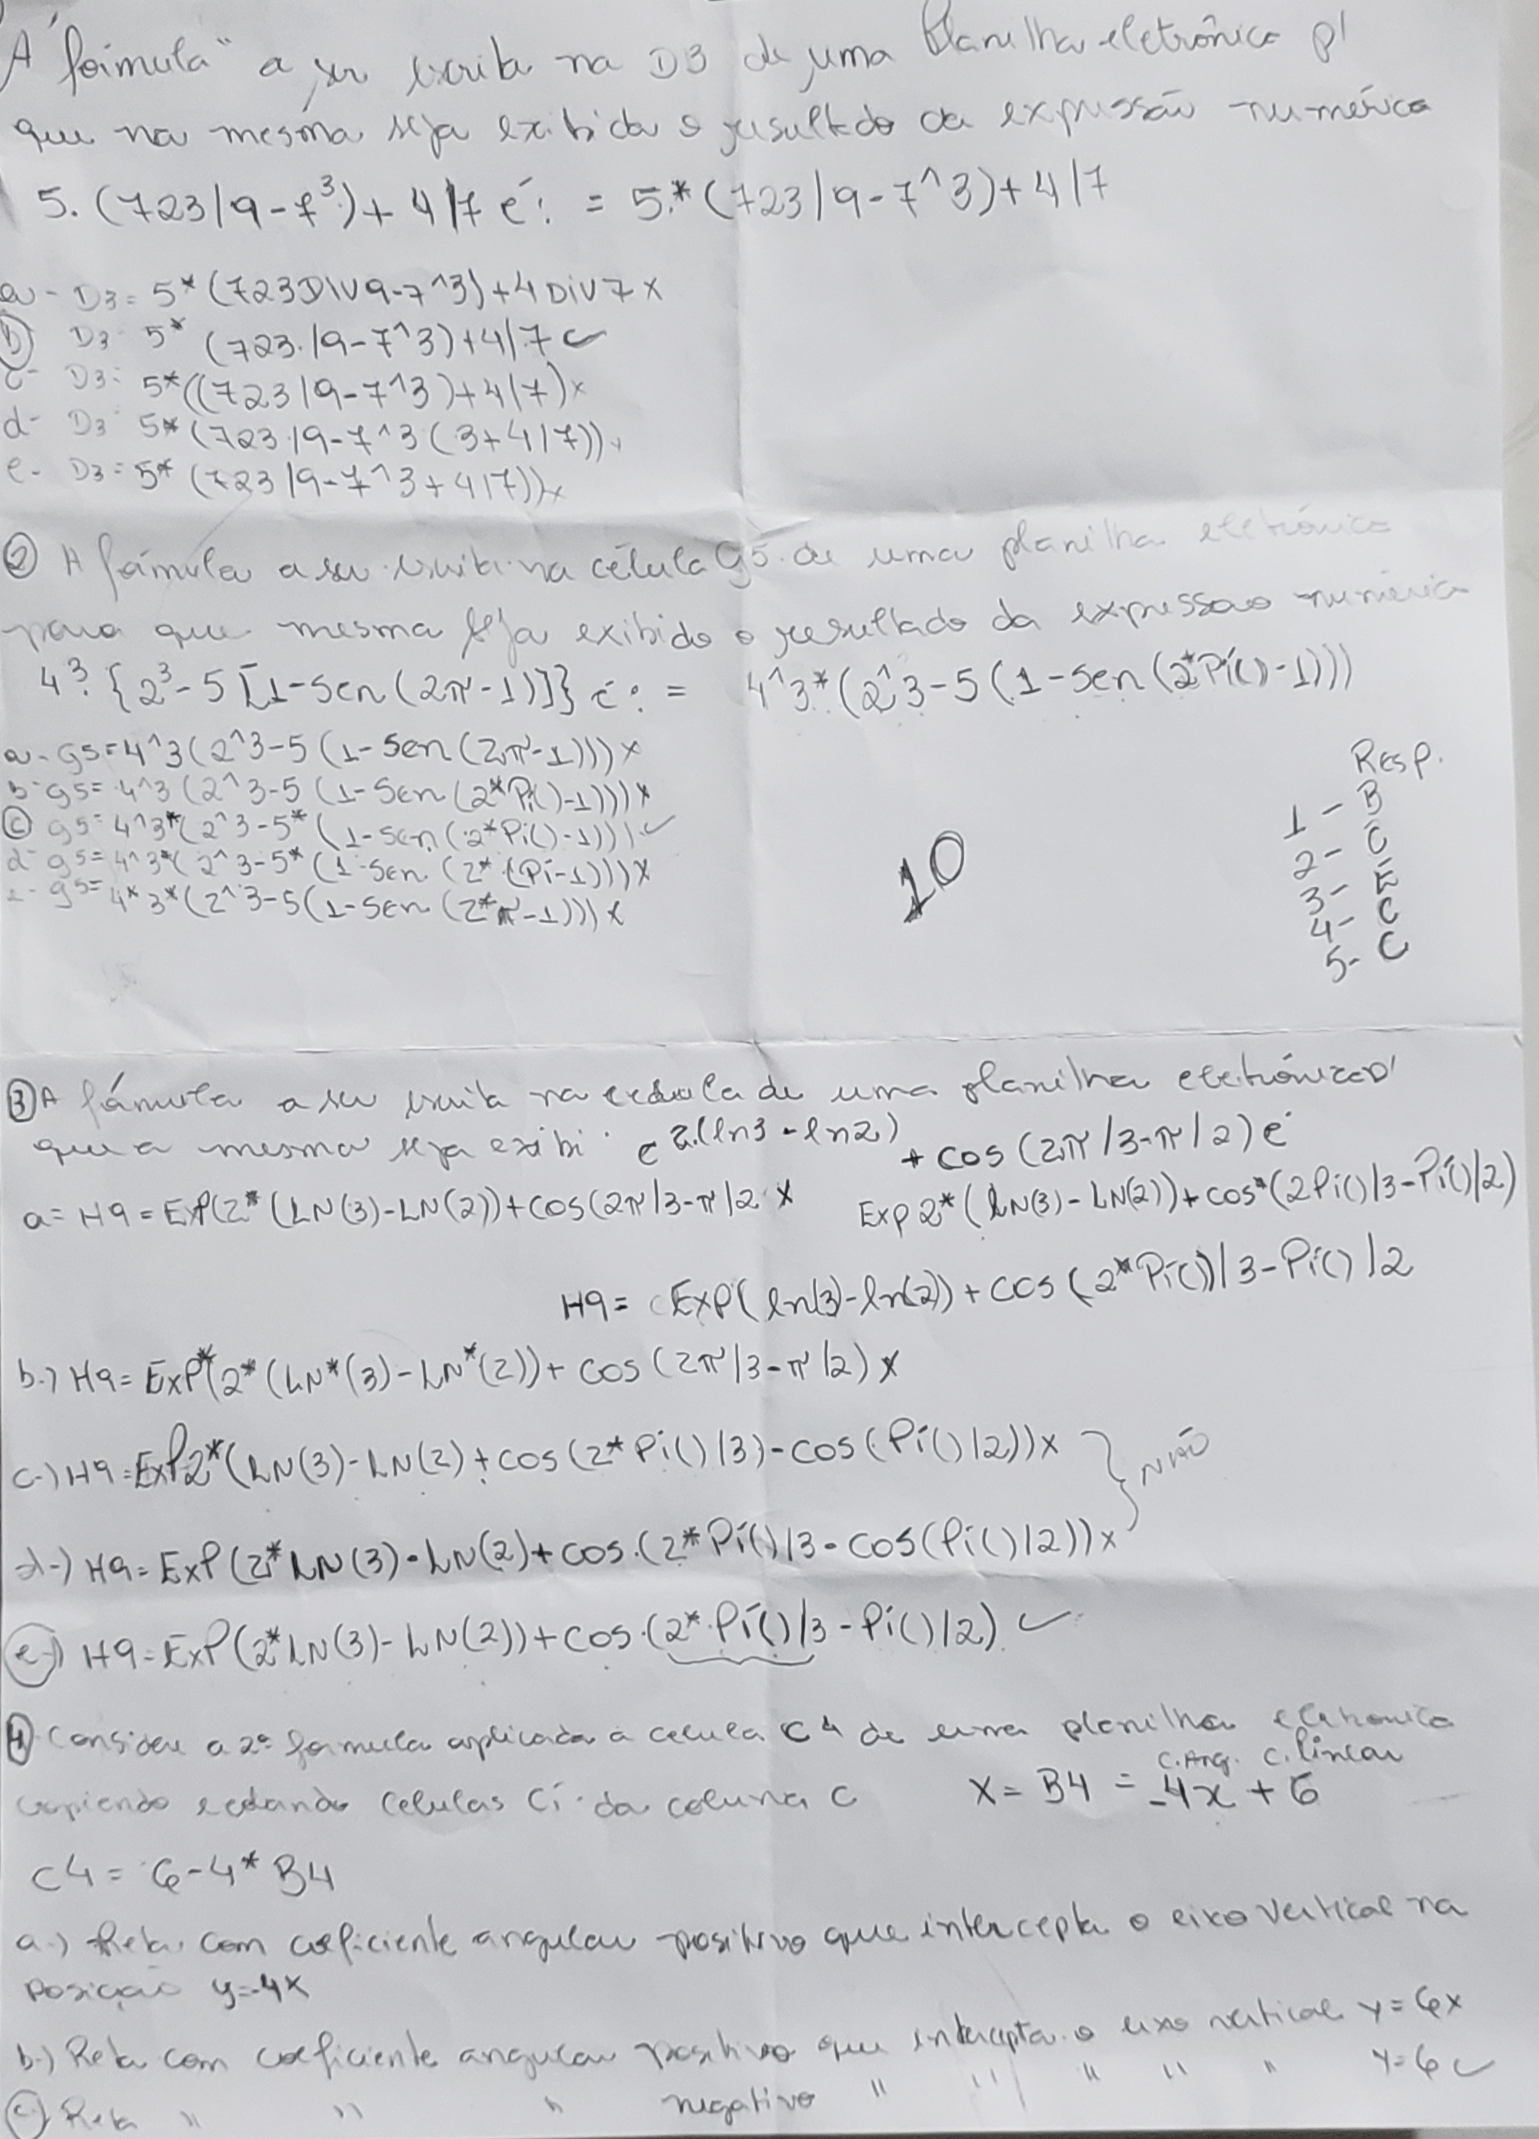 A "fórmula" a ser escrita na D3 de uma Planilha eletrônica p/
que na mesma seja exibida o resultado da expressão numérica
5.(723/9-7³)+4/7 é: = 5.*(723/9-7^3)+4/7
a- D3= 5*(723DIV9-7^3)+4DIV7 x
b) D3 5* (723./9-7^3)+4/7 ✓
c- D3: 5*((723/9-7^3)+4/7)x
d- D3 5*(723/9-7^3(3+4/7))x
e- D3=5* (723/9-7^3+4/7))x
② A fórmula a ser escrita na célula G5 de uma planilha eletrônica
para que mesma seja exibido o resultado da expressão numérica
4³.{2³-5[1-sen(2π-1)]} é: = 4^3*(2^3-5(1-sen(2*Pi()-1)))
a- G5=4^3(2^3-5(1-sen(2π-1)))x
b- G5= 4^3(2^3-5(1-sen(2*Pi()-1)))x
ⓒ G5= 4^3*(2^3-5*(1-sen(2*Pi()-1))) ✓
d- G5=4^3*(2^3-5*(1-sen(2*(Pi-1)))x
e- G5= 4*3*(2^3-5(1-sen(2*π-1)))x
Resp.
1 - B
2 - C
3 - E
4 - C
5 - C
10
③ A fórmula a ser escrita na célula de uma planilha eletrônica p/
que a mesma seja exibi e^2.(ln3-ln2) + cos(2π/3-π/2) é
a= H9=EXP(2*(LN(3)-LN(2))+cos(2π/3-π/2 x Exp2*(LN(3)-LN(2))+cos*(2Pi()/3-Pi()/2)
H9= EXP(ln(3)-ln(2))+cos(2*Pi())/3-Pi()/2
b-) H9=EXP*(2*(LN*(3)-LN*(2))+cos(2π/3-π/2)x
c-) H9=EXP2*(LN(3)-LN(2)+cos(2*Pi()/3)-cos(Pi()/2))x } NÃO
d-) H9=EXP(2*LN(3)-LN(2)+cos.(2*Pi()/3-cos(Pi()/2))x
e-) H9=EXP(2*LN(3)-LN(2))+cos.(2*.Pi()/3-Pi()/2) ✓
④ Considere a 2º formula aplicada a celula C4 de uma planilha eletronica
C.Ang. C.linear
copiando e colando celulas Ci da coluna C X= B4 = -4x+6
C4= 6-4*B4
a-) Reta com coeficiente angular positivo que intercepta o eixo vertical na
posição y=-4x
b-) Reta com coeficiente angular positivo que intercepta o eixo vertical y=6x
c-) Reta " " " negativo " " " " " y=6 ✓